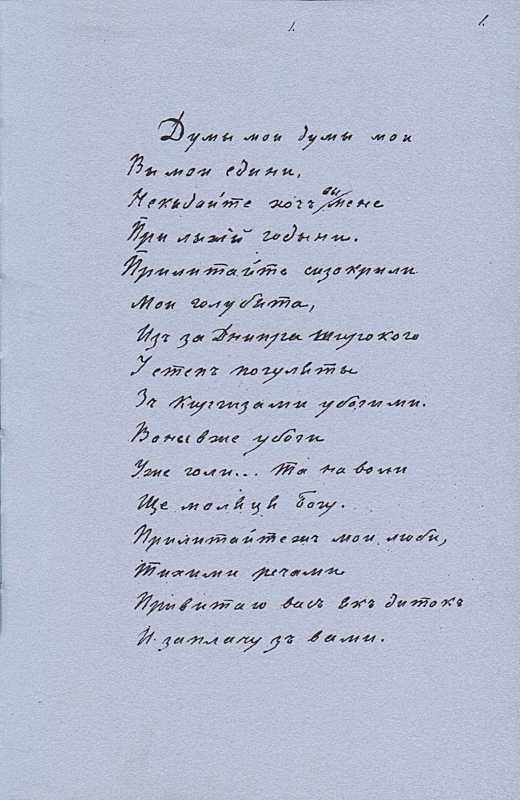 1. 1.
Думы мои думы мои
Вы мои едини,
Некыдайте хочъ вы мене
При лыхій годыни.
Прилитайте сизокрили
Мои голубята,
Изъ за Днипра широкого
У степъ погуляты
Зъ Киргизами убогими.
Воны вже убоги
Уже голи... та на воли
Ще моляця Богу.
Прилитайтежъ мои люби,
Тихими речами
Привитаю васъ якъ дитокъ
И заплачу зъ вами.